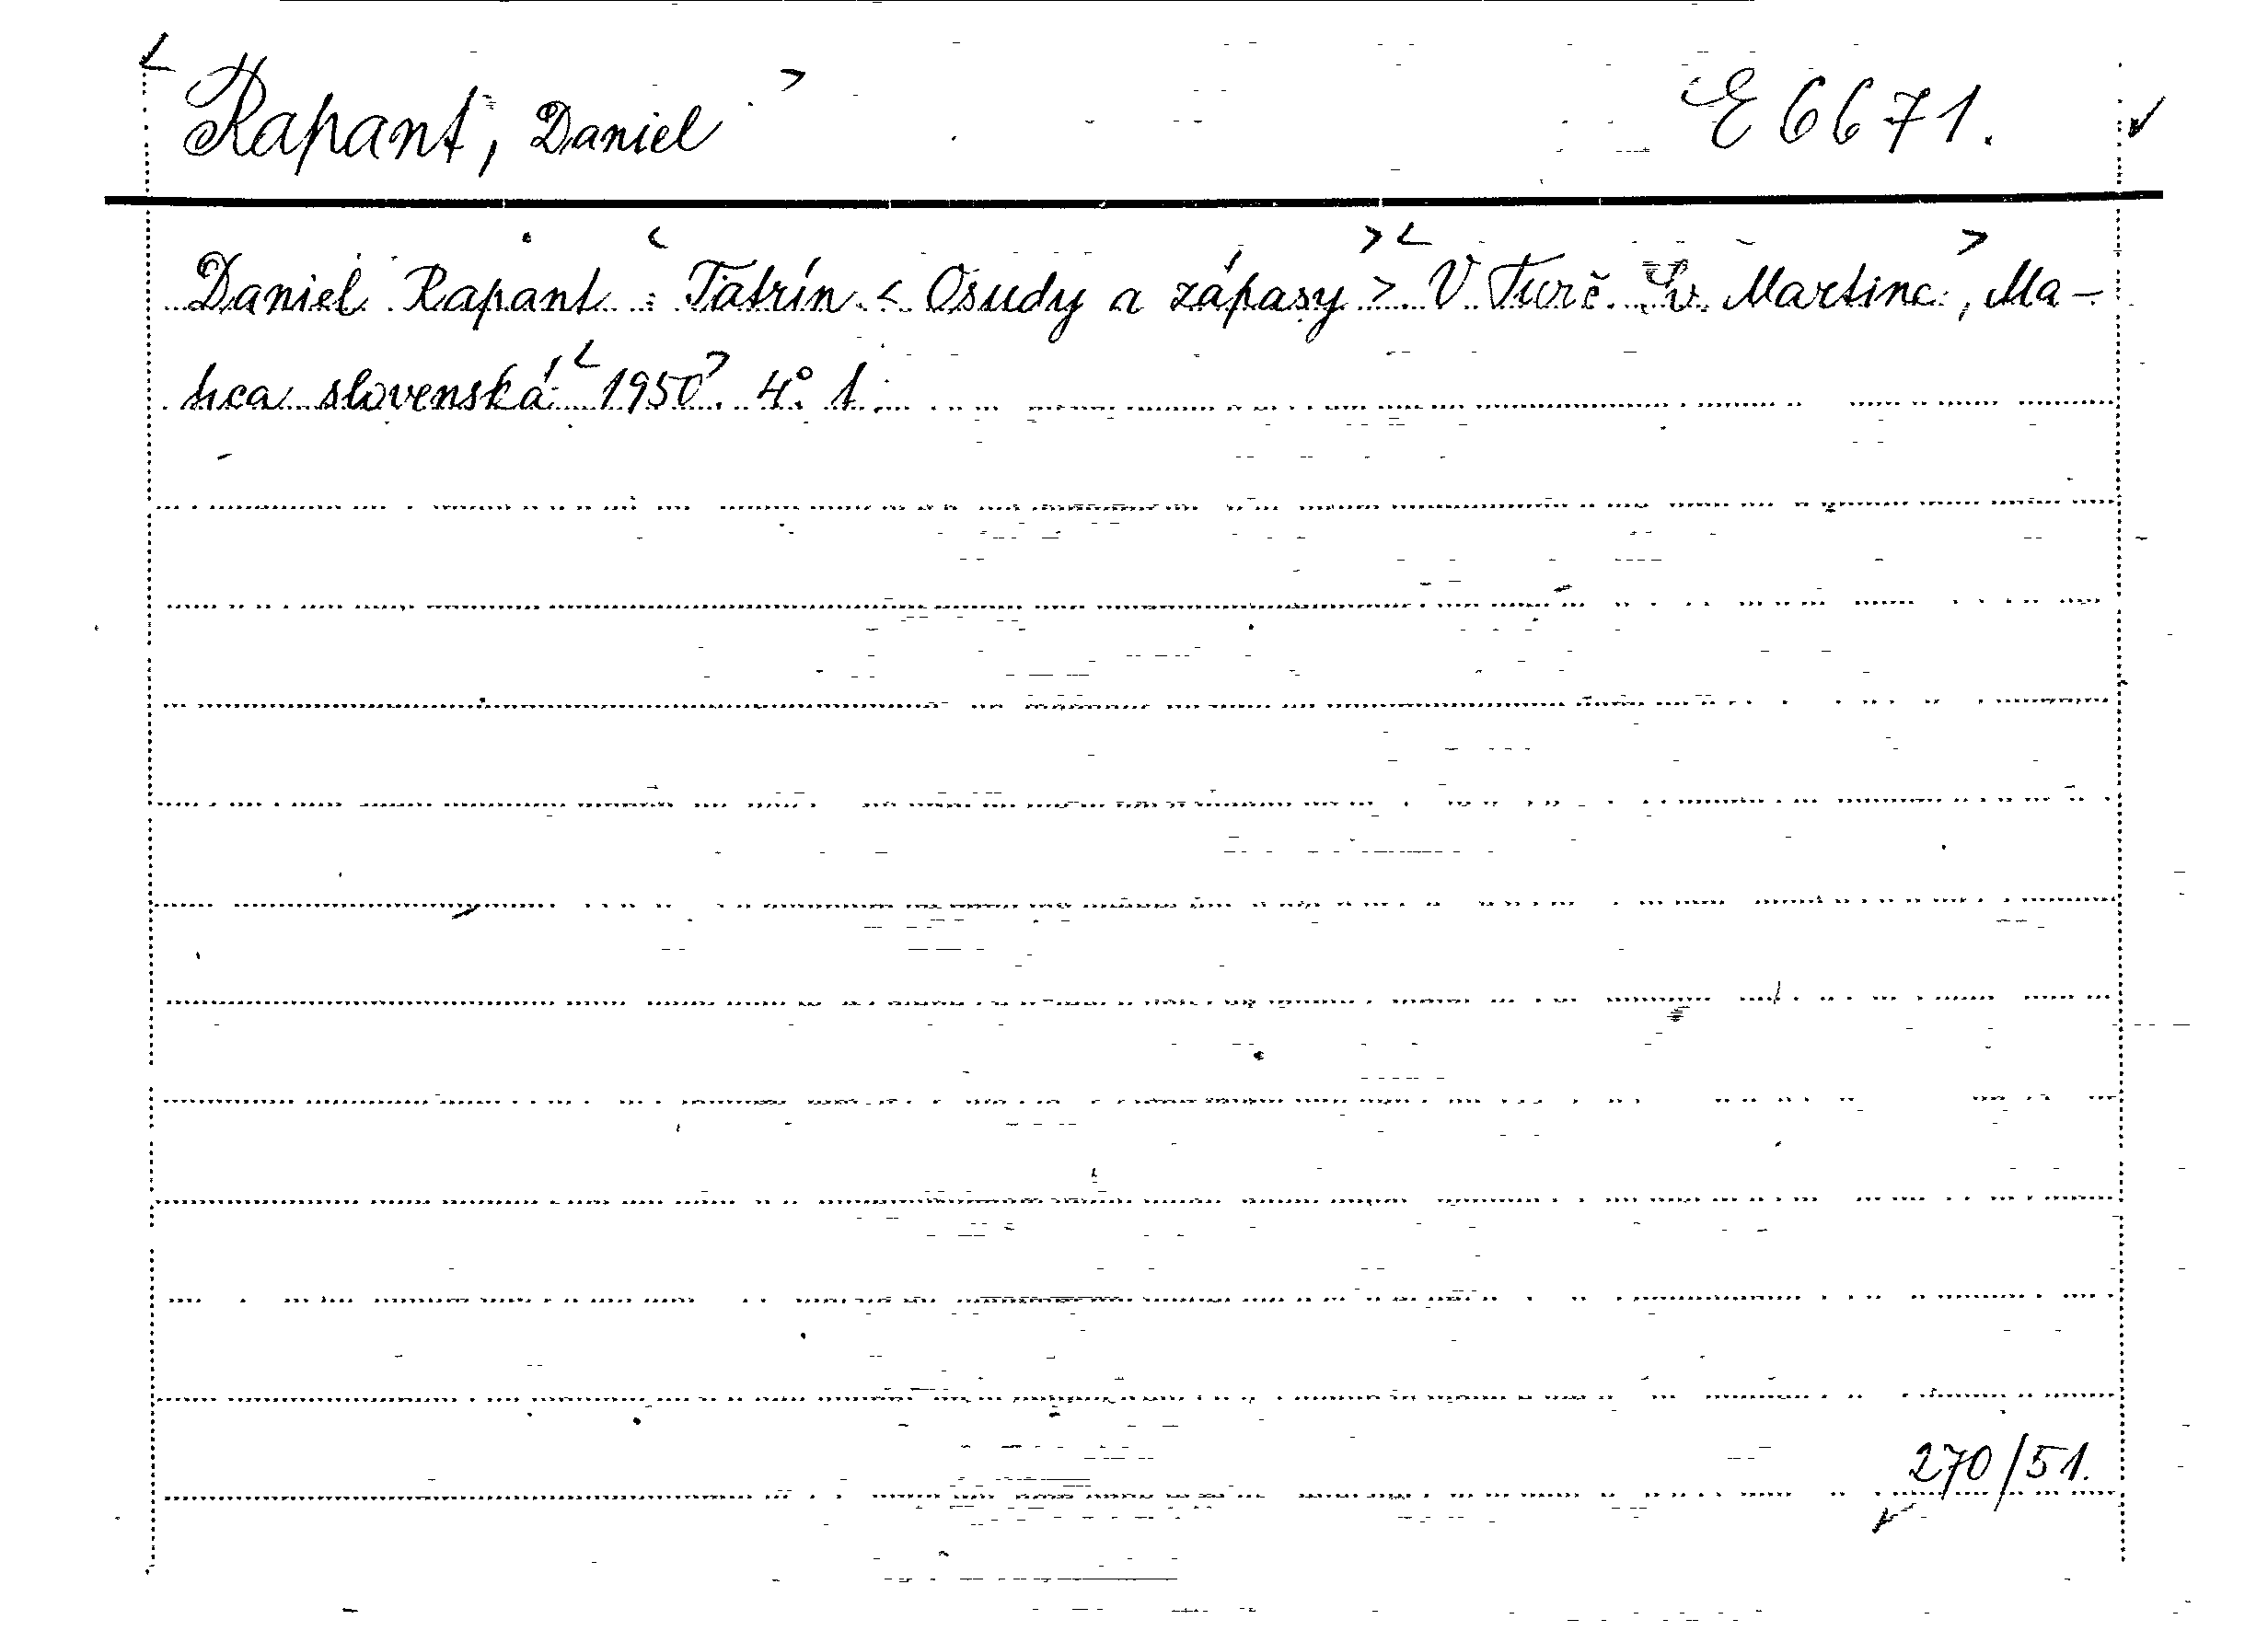 Rapant, Daniel E 6671.
Daniel Rapant : Tatrín < Osudy a zápasy > V Turč. Sv. Martine, Ma-
tica slovenská 1950. 4° 1.
270/51.